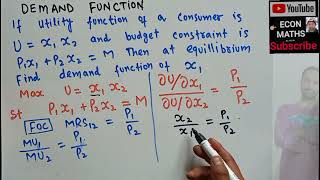 DEMAND FUNCTION
If utility function of a consumer is
U = x₁ x₂ and budget constraint is
P₁x₁ + P₂x₂ = M Then at equilibrium
Find demand function of x₁
Max U = x₁ x₂
St P₁x₁ + P₂x₂ = M
FOC MRS₁₂ = P₁/P₂
MU₁/MU₂ = P₁/P₂
∂U/∂x₁ / ∂U/∂x₂ = P₁/P₂
x₂/x₁ = P₁/P₂
YouTube
ECON
MATHS
Subscribe